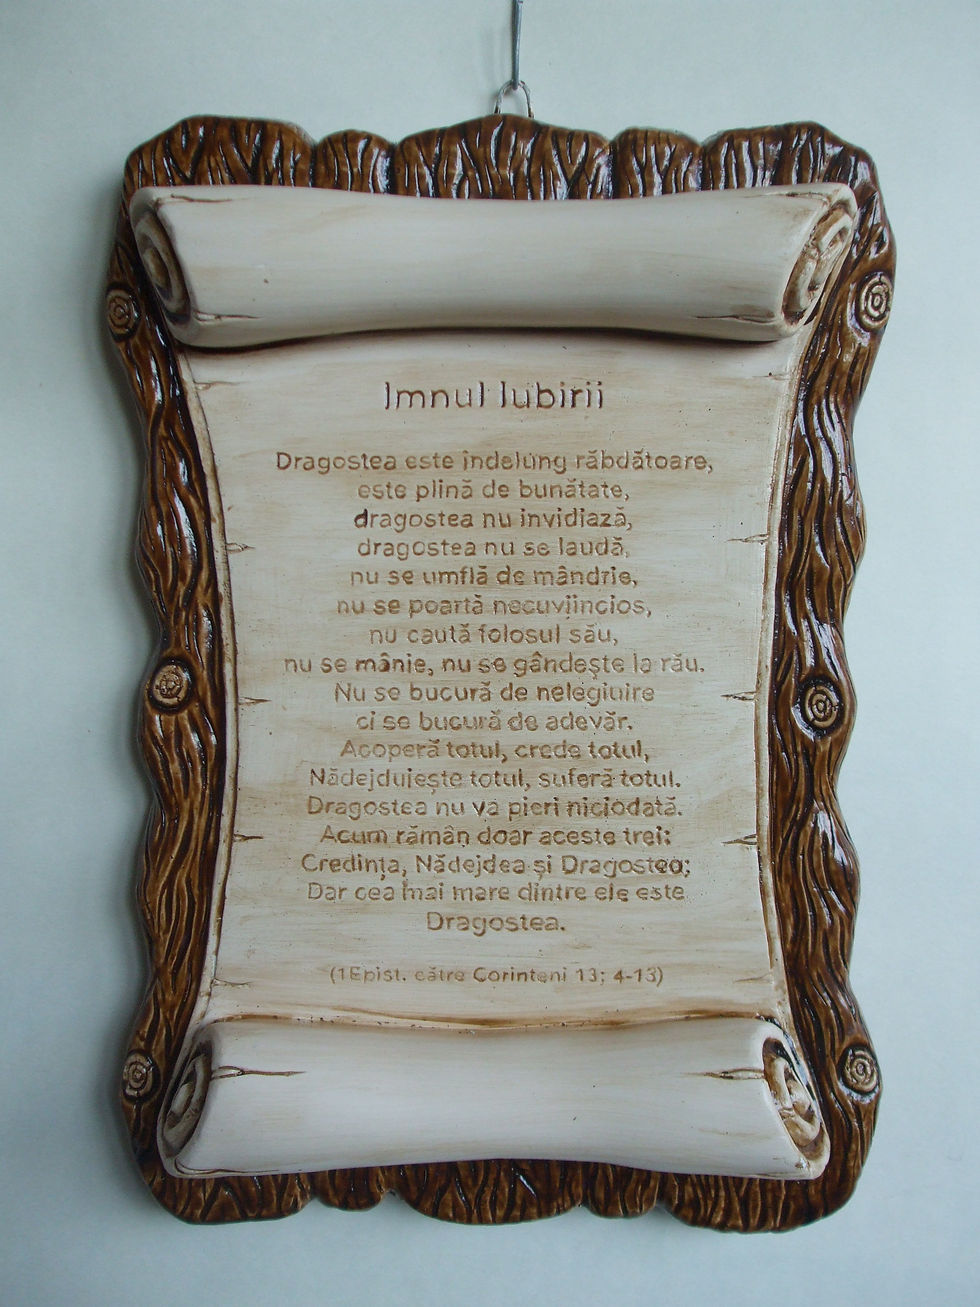 Imnul Iubirii
Dragostea este îndelung răbdătoare,
este plină de bunătate,
dragostea nu invidiază,
dragostea nu se laudă,
nu se umflă de mândrie,
nu se poartă necuviincios,
nu caută folosul său,
nu se mânie, nu se gândeşte la rău.
Nu se bucură de nelegiuire
ci se bucură de adevăr.
Acoperă totul, crede totul,
Nădejduieşte totul, suferă totul.
Dragostea nu va pieri niciodată.
Acum rămân doar aceste trei:
Credinţa, Nădejdea şi Dragostea;
Dar cea mai mare dintre ele este
Dragostea.
(1Epist. către Corinteni 13; 4-13)